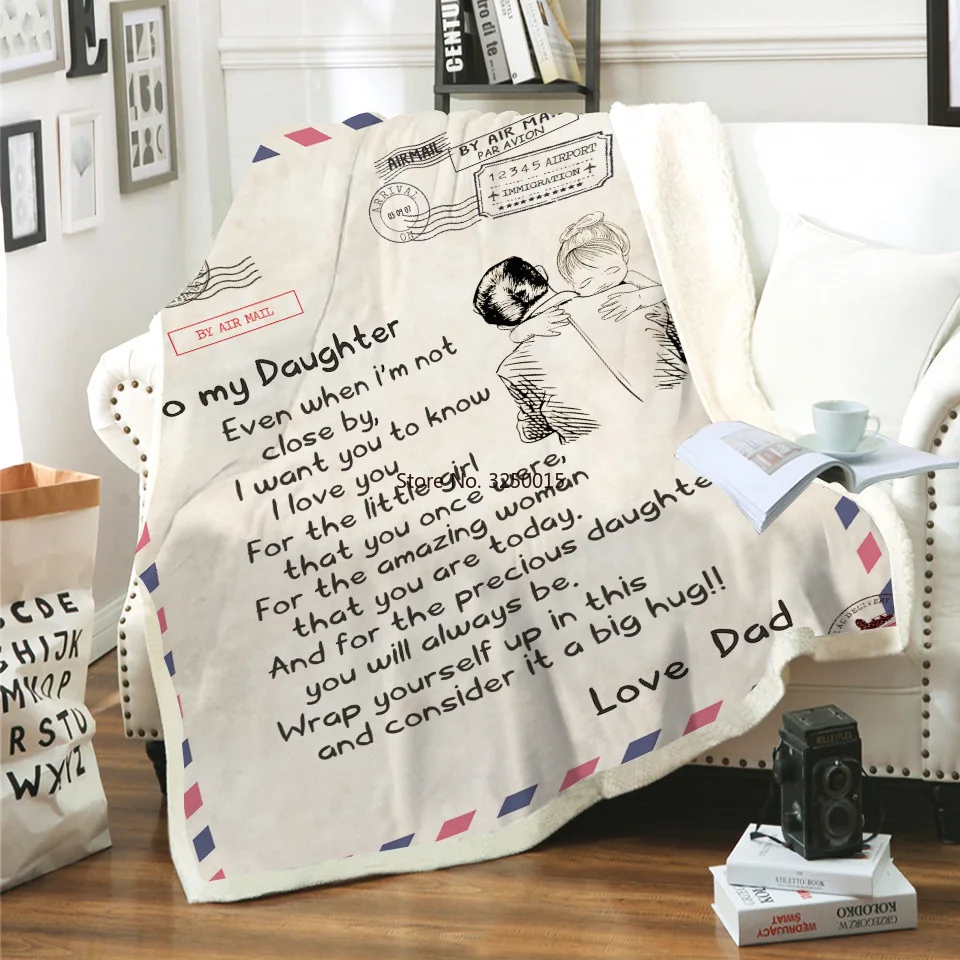 E
CENTU
AIRMAIL
BY AIR MA
PAR AVION
12345 AIRPORT
IMMIGRATION
ARRIVAL
BY AIR MAIL
o my Daughter
Even when i'm not
close by,
I want you to know
I love you
For the little girl
that you once were,
For the amazing woman
that you are today.
And for the precious daughte
you will always be.
Wrap yourself up in this
and consider it a big hug!!
Love Dad
Store No. 3250015
CDE
GHIJK
MNOP
RSTU
WXYZ
STILETTO BOOK
WĘDRUJĄCY
ŚWIAT
GRZEGORZ W.
KOŁODKO